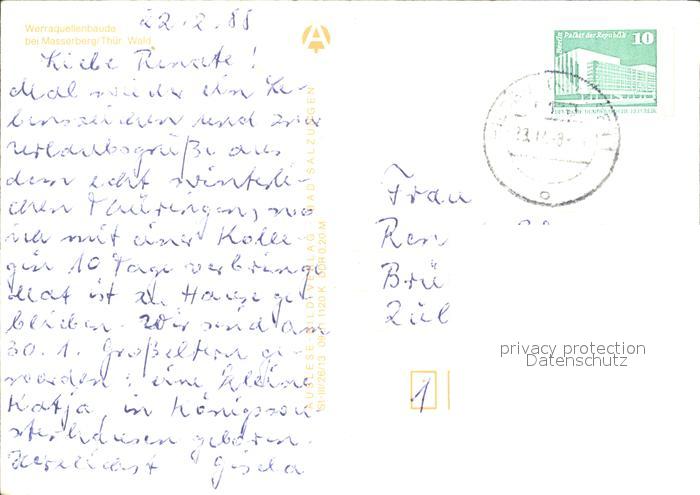 22.2.88
Werraquellenbaude
bei Masserberg/Thür. Wald
Liebe Renate!
Mal wieder ein Le-
benszeichen und zwar
Urlaubsgrüße aus
dem echt winterli-
chen Thüringen, wo
ich mit einer Kolle-
gin 10 Tage verbringe
ist zu Hause ge-
blieben. Wir sind am
30.1. Großeltern ge-
worden: eine kleine
Katja, in Königswu-
sterhausen geboren.
Herzlichst Gisela
AUSLESE-BILD-VERLAG BAD SALZUNGEN
Berlin Palast der Republik
10
Frau
Ren
Brü
1
privacy protection
Datenschutz